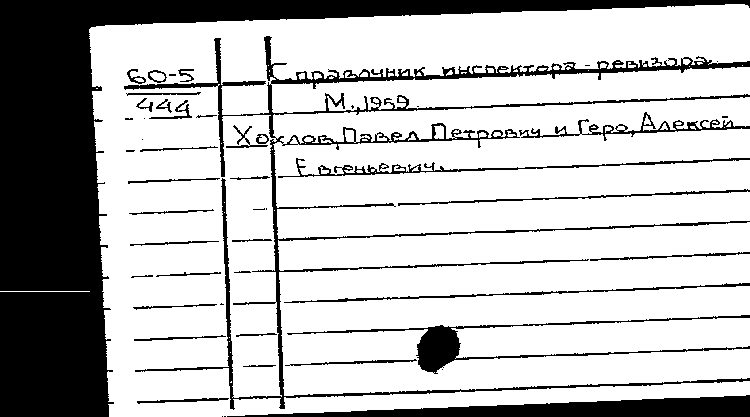 60-5
444
Справочник инспектора-ревизора.
М., 1959
Хохлов, Павел Петрович и Геро, Алексей
Евгеньевич.